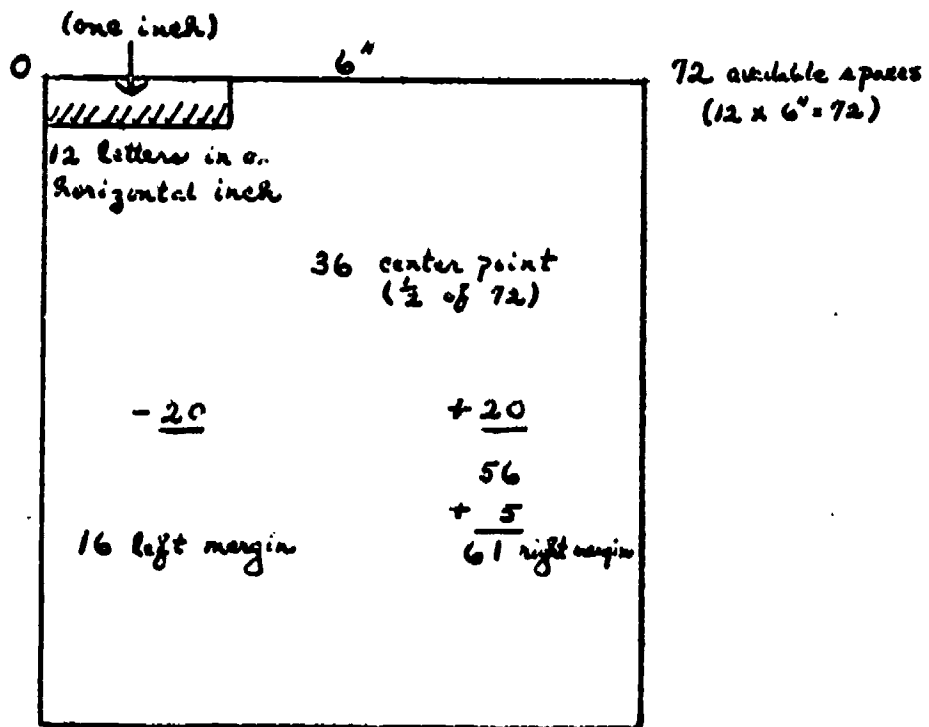 (one inch)
0 6" 72 available spaces
(12 x 6" = 72)
12 letters in a
horizontal inch
36 center point
(½ of 72)
- 20 + 20
56
+ 5
16 left margin 61 right margin